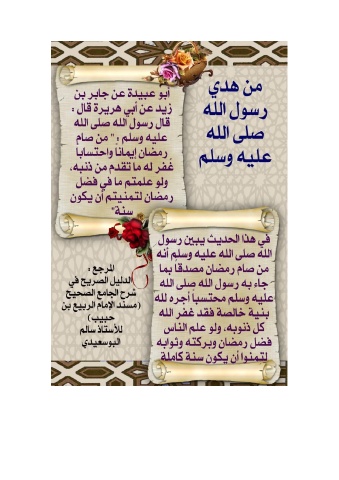 من هدي
رسول الله
صلى الله
عليه وسلم
ابو عبيدة عن جابر بن
زيد عن أبي هريرة قال :
قال رسول الله صلى الله
عليه وسلم : " من صام
رمضان إيمانا واحتسابا
غفر له ما تقدم من ذنبه،
ولو علمتم ما في فضل
رمضان لتمنيتم أن يكون
سنة"
في هذا الحديث يبين رسول
الله صلى الله عليه وسلم أنه
من صام رمضان مصدقا بما
جاء به رسول الله صلى الله
عليه وسلم محتسبا أجره لله
بنية خالصة فقد غفر الله
كل ذنوبه، ولو علم الناس
فضل رمضان وبركته وثوابه
لتمنوا أن يكون سنة كاملة
المرجع :
الدليل الصريح في
شرح الجامع الصحيح
(مسند الإمام الربيع بن
حبيب)
للأستاذ سالم
البوسعيدي